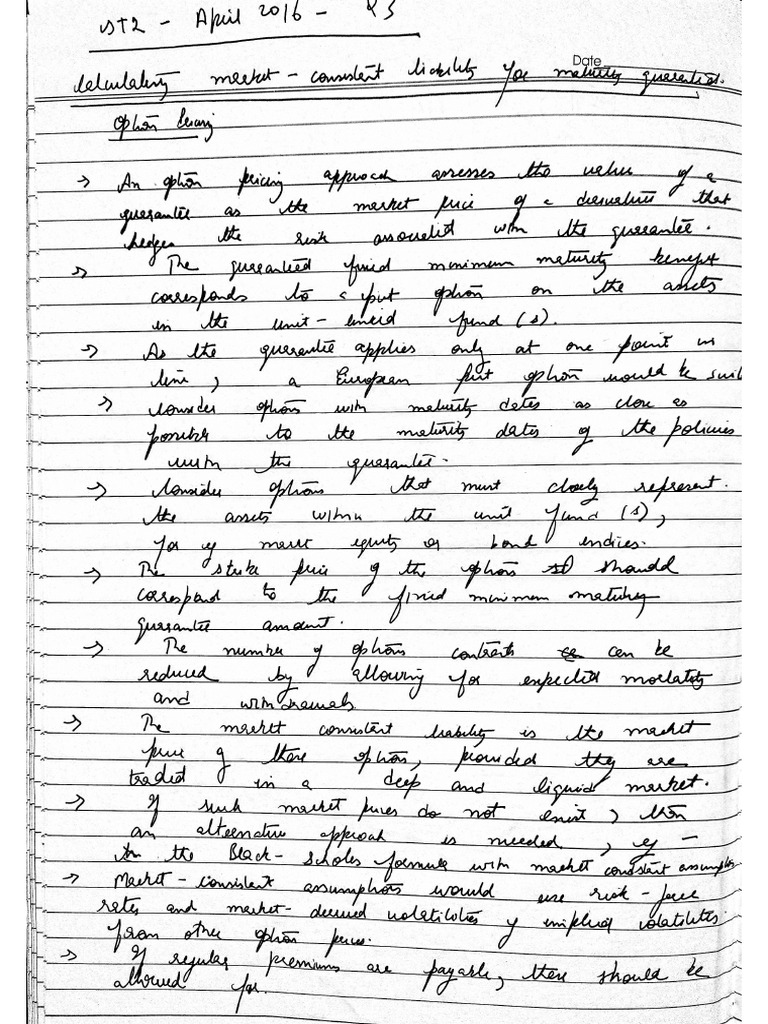 ST2 - April 2016 - Q3
Date
Calculating market-consistent liability for maturity guarantees.
Option Pricing
→ An option pricing approach assesses the value of a
guarantee as the market price of a derivative that
hedges the risk associated with the guarantee.
→ The guaranteed fixed minimum maturity benefit
corresponds to a put option on the assets
in the unit-linked fund (s).
→ As the guarantee applies only at one point in
time, a European put option would be suit
→ Consider options with maturity dates as close as
possible to the maturity dates of the policies
with the guarantee.
→ Consider options that most closely represent
the assets within the unit fund (s),
for eg market equity or bond indices.
→ The strike price of the options should
correspond to the fixed minimum maturity
guarantee amount.
→ The number of options contracts can be
reduced by allowing for expected mortality
and withdrawals
→ The market consistent liability is the market
price of these options, provided they are
traded in a deep and liquid market.
→ If such market prices do not exist, then
an alternative approach is needed, eg -
the Black-Scholes formula with market consistent assumptions
→ Market-consistent assumptions would use risk-free
rates and market-derived volatilities eg implied volatilities
from other option prices.
→ If regular premiums are payable, these should be
allowed for.